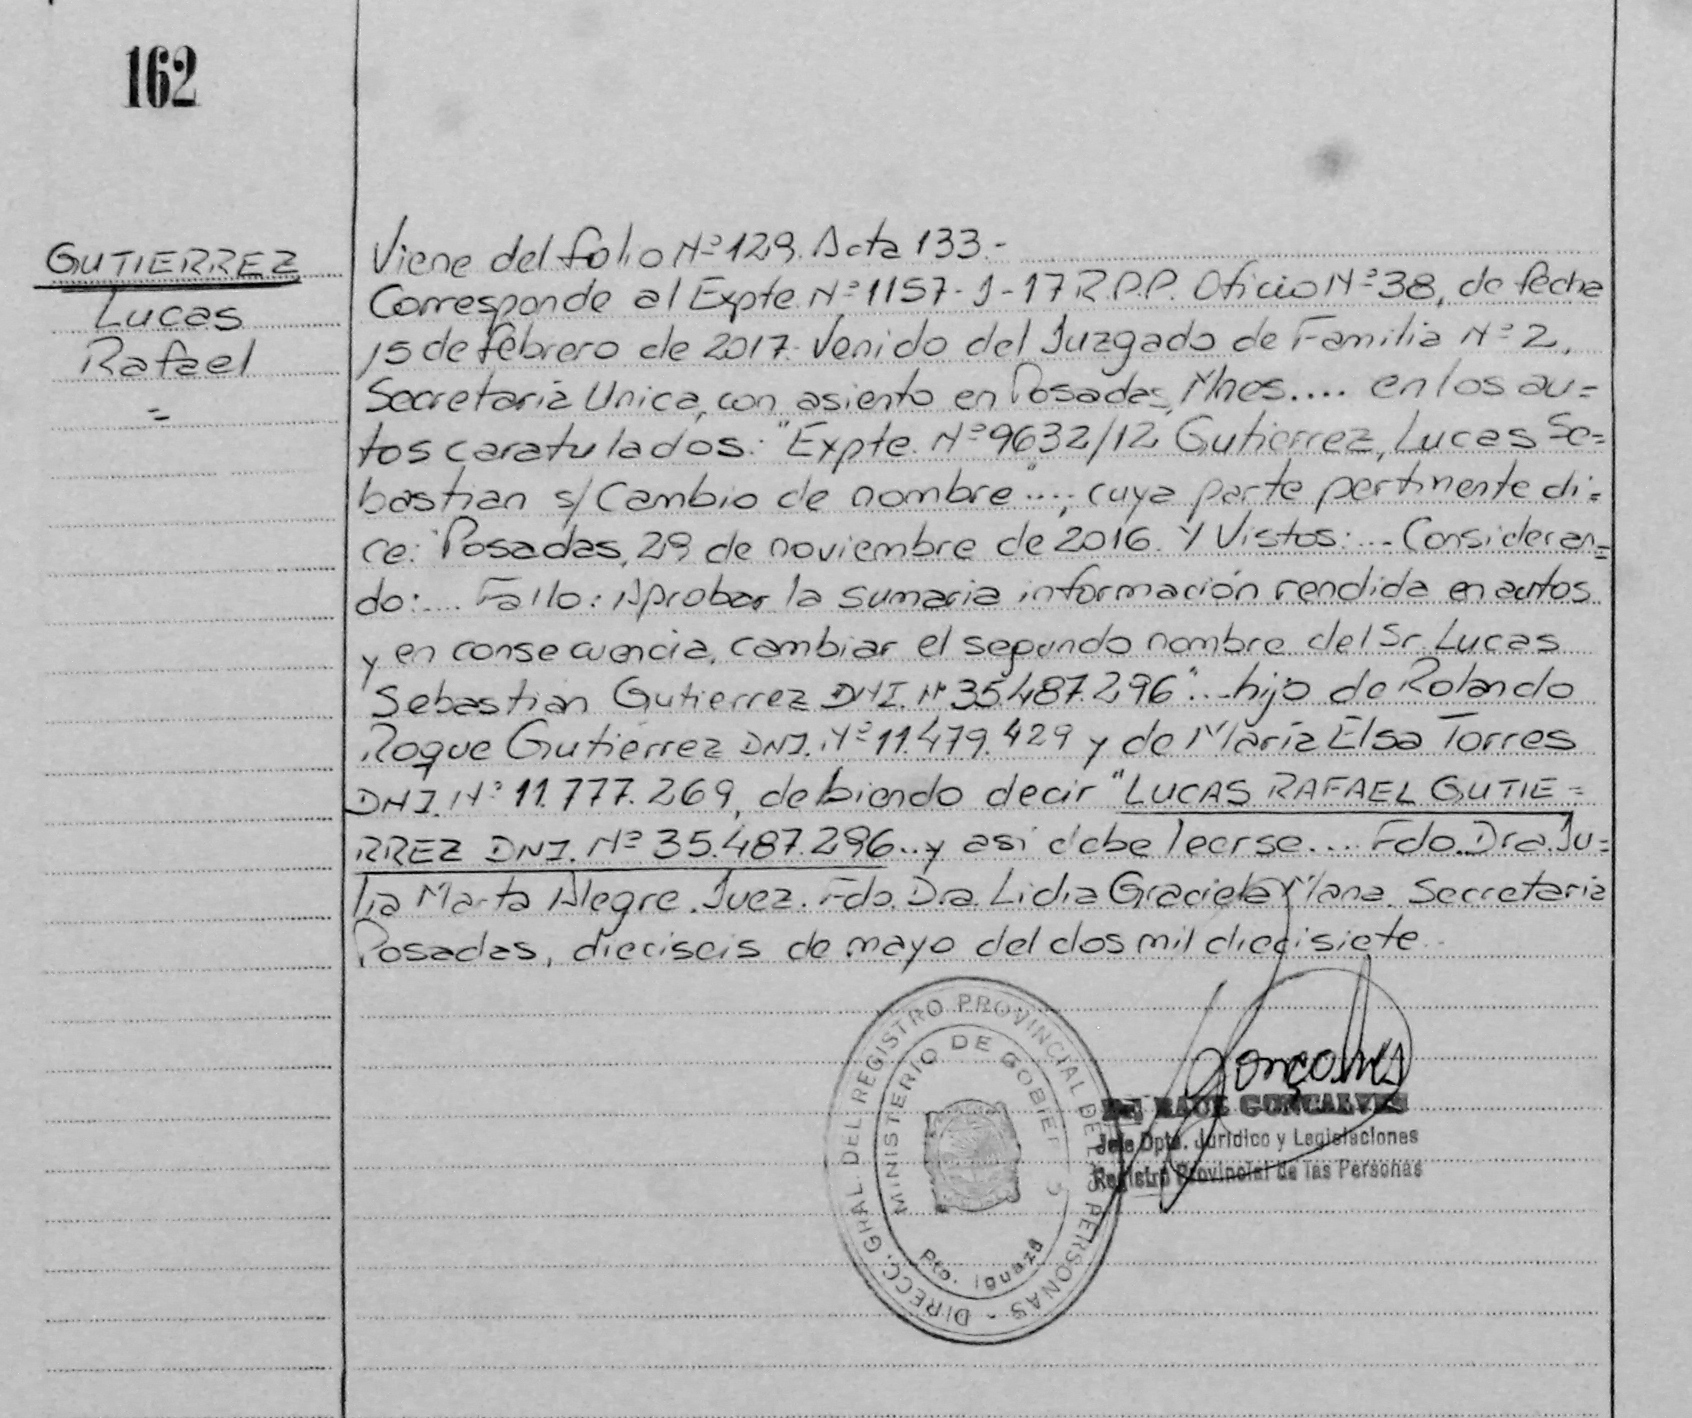 162
GUTIERREZ
Lucas
Rafael
=
Viene del folio Nº 129. Acta 133.-
Corresponde al Expte. Nº 1157-J-17 R.P.P. Oficio Nº 38, de fecha
15 de febrero de 2017. Venido del Juzgado de Familia Nº 2,
Secretaria Unica, con asiento en Posadas, Mnes.... en los au=
tos caratulados: "Expte. Nº 9632/12 Gutierrez, Lucas Se=
bastian s/ Cambio de nombre"...., cuya parte pertinente di=
ce: "Posadas, 29 de noviembre de 2016. Y Vistos:... Consideran=
do:.... Fallo: Aprobar la sumaria información rendida en autos
y en consecuencia, cambiar el segundo nombre del Sr. Lucas
Sebastian Gutierrez DNI. Nº 35.487.296"... hijo de Rolando
Roque Gutierrez DNI. Nº 11.479.429 y de Maria Elsa Torres
DNI. Nº 11.777.269, debiendo decir "LUCAS RAFAEL GUTIE=
RREZ DNI. Nº 35.487.296... y asi debe leerse.... Fdo. Dra. Ju=
lia Marta Alegre. Juez. Fdo. Dra. Lidia Graciela Mana. Secretaria
Posadas, dieciseis de mayo del dos mil diecisiete.-
DIRECC. GRAL. DEL REGISTRO PROVINCIAL DE LAS PERSONAS -
MINISTERIO DE GOBIERNO
Pto. Iguazú
Gonçalves
RAUL GONCALVES
Jefe Dpto. Jurídico y Legislaciones
Registro Provincial de las Personas